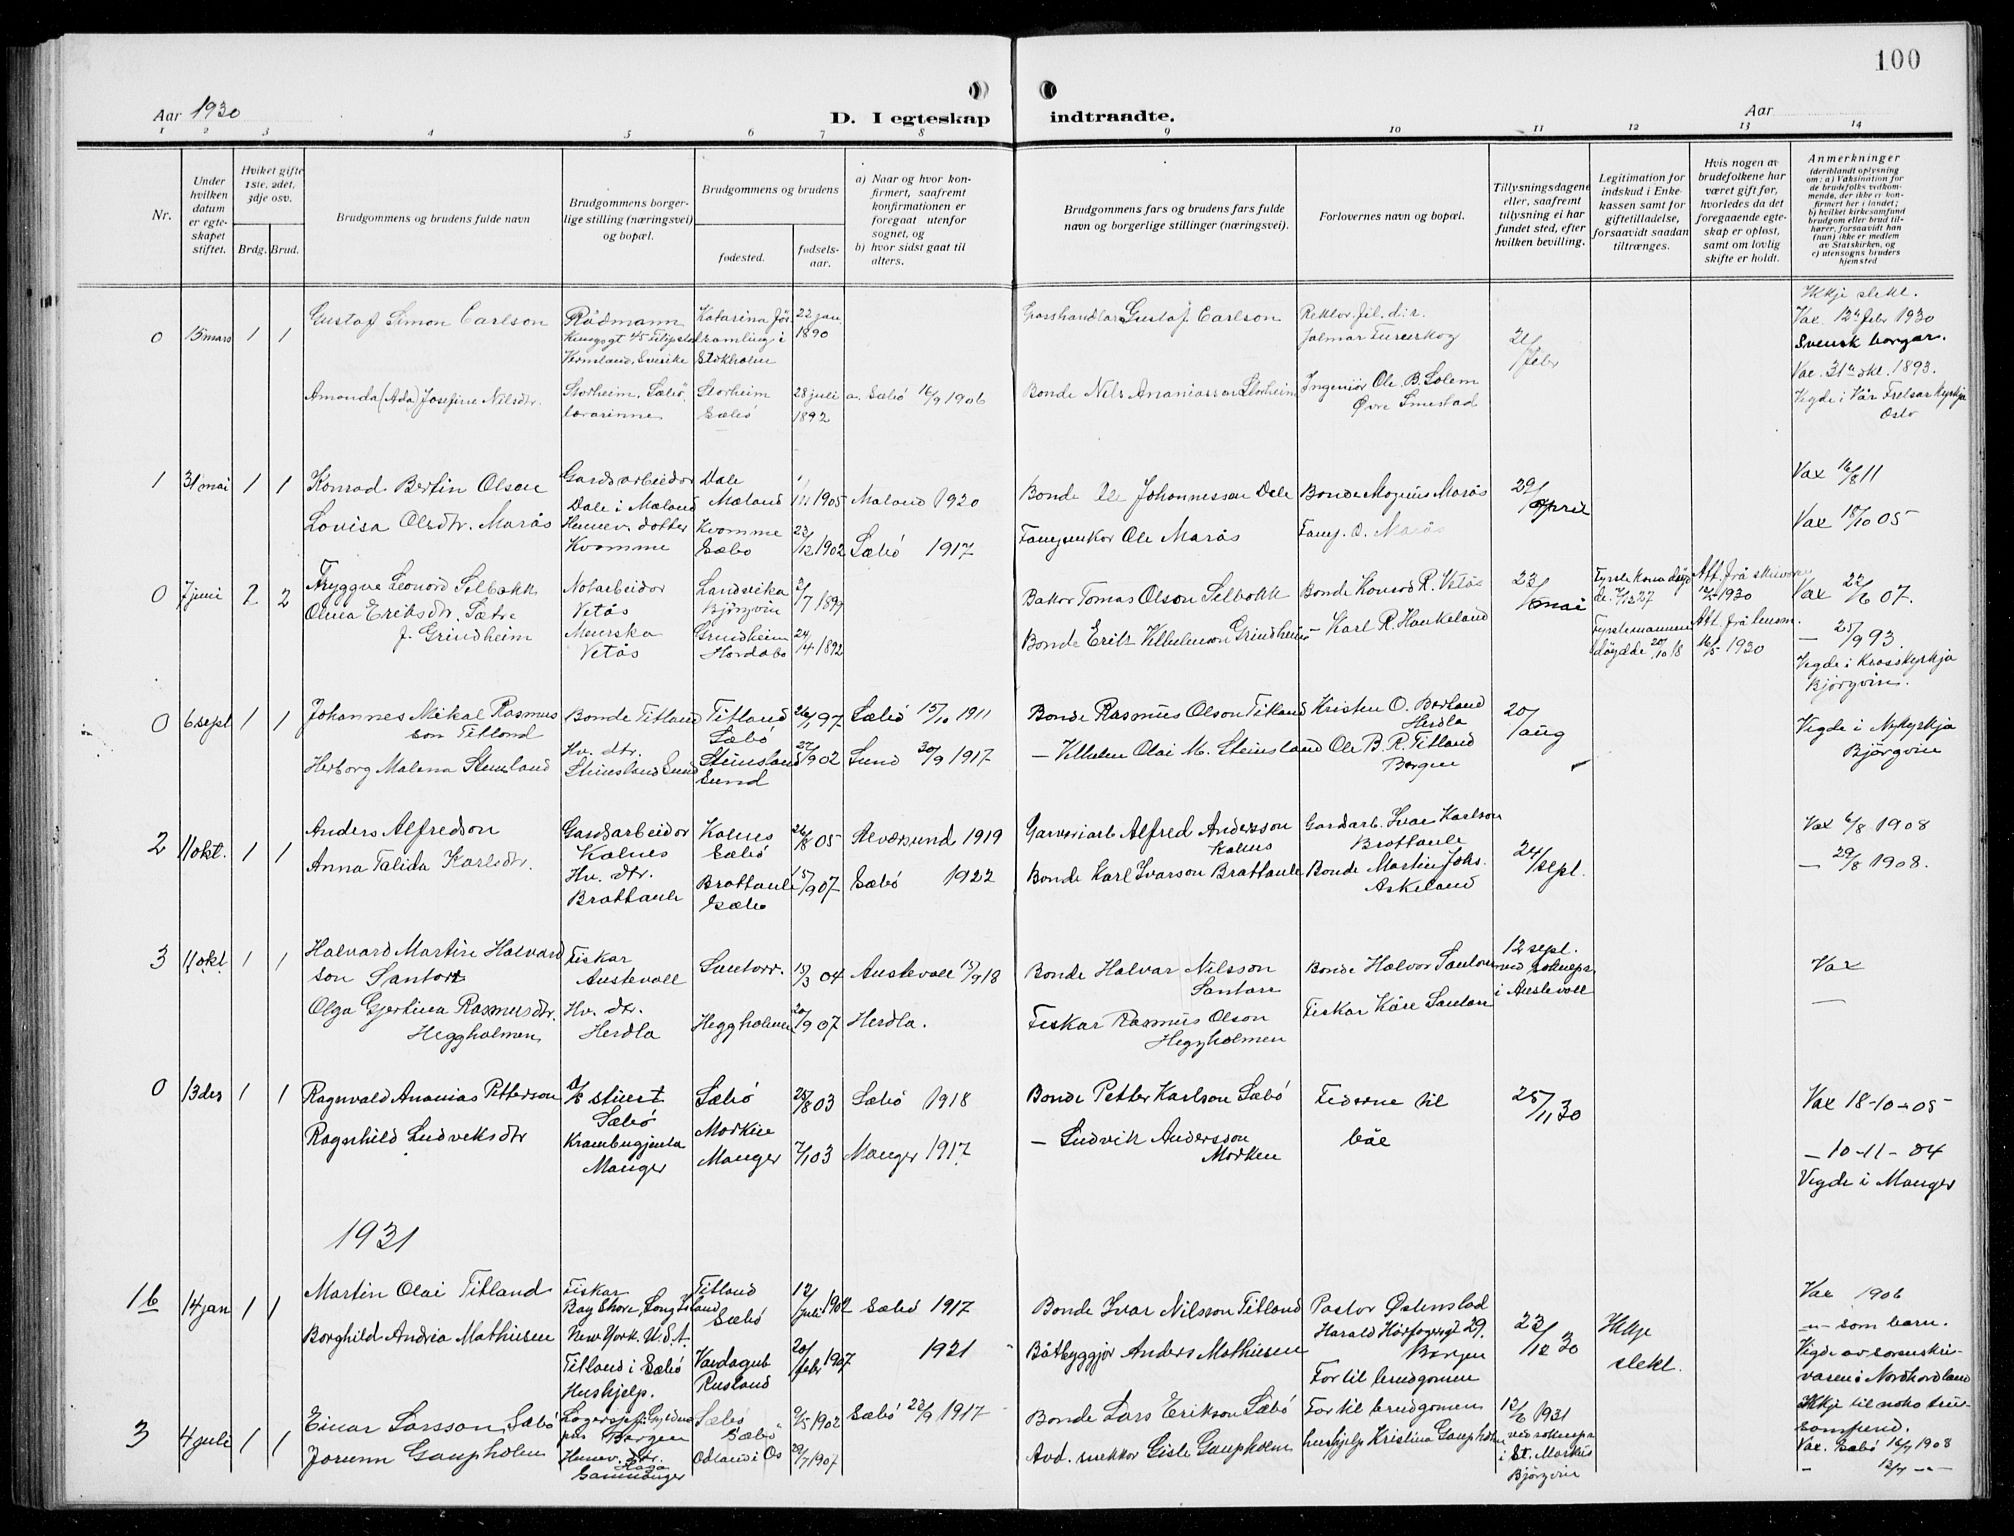 100
Aar 1930
D. I egteskap indtraadte.
Aar
1 2 3 4 5 6 7 8 9 10 11 12 13 14
Nr.
Under hvilken datum er egteskapet stiftet.
Hviket gifte 1ste, 2det, 3dje osv.
Brdg. Brud.
Brudgommens og brudens fulde navn
Brudgommens borgerlige stilling (næringsvei) og bopæl.
Brudgommens og brudens
fødested.
fødsels-aar.
a) Naar og hvor konfirmert, saafremt konfirmationen er foregaat utenfor sognet, og
b) hvor sidst gaat til alters.
Brudgommens fars og brudens fars fulde navn og borgerlige stillinger (næringsvei).
Forlovernes navn og bopæl.
Tillysningsdagene eller, saafremt tillysning ei har fundet sted, efter hvilken bevilling.
Legitimation for indskud i Enkekassen samt for giftetilladelse, forsaavidt saadan tiltrænges.
Hvis nogen av brudefolkene har været gift før, hvorledes da det foregaaende egteskap er opløst, samt om lovlig skifte er holdt.
Anmerkninger (deriblandt oplysning om: a) Vaksination for de brudefolks vedkommende, der ikke er konfirmert her i landet; b) hvilket kirkesamfund brudgom eller brud tilhører, forsaavidt han (hun) ikke er medlem av Statskirken, og c) utensogns bruders hjemsted
0 15 mars 1 1
Gustaf Simon Carlson
Rådmann
Kungsgt 45 Filipstad
Vermland, Sverike
Katarina för
samling i
Stokholm
22 jan
1890
Grosshandlar Gustaf Carlson
Rektor fil. dir.
21/febr
Ikkje slekt.
Vax. 12te febr 1930
Svensk borgar.
Amanda (Ada) Josefine Nilsdtr.
Storheim, Sæbö,
lærarinne
Storheim
Sæbö
28 juli
1892
a. Sæbö 16/9 1906
Bonde Nils Ananiasson Storheim
Ingeniör Ole B. Solem
Övre Smestad
Vax. 31te okt. 1893.
Vigde i Vår Frelsar kyrkje
Oslo
1 31 mai 1 1
Konrad Bertin Olson
Gardsarbeidar
Dale i Mæland
Dale
Mæland
1/11 1905
Mæland 1920
Bonde Ole Johannesson Dale
Bonde Mognus Marås
29/april
Vax 16/8 11
Lovisa Olsdtr. Marås
Heimev. dotter
Kvamme
Kvamme
Sæbö
23/12 1902
Sæbö 1917
Ole Marås
Vax 18/10 05
0 7 juni 2 2
Tryggve Leonord Selbakk
Notarbeidar
Vetås
Landvika
Björgvin
2/7 1899
Bakar Tomas Olson Selbakk
Bonde Konrad R. Vetås
23/mai
Fyrste kona döyde 7/12 27
Att. frå skivaren
12/5 1930
Vax 22/6 07.
Olina Eriksdtr. Sætre
f. Grindheim
Vetås
Grindheim
Hordabö
24/4 1892
Bonde Erik Vilhelmson Grindheim
– Karl R. Haukeland
Fyrstemannen
döydde 20/10 18
Att. frå lensm.
16/5 1930
– 25/9 93.
Vigde i Krosskyrkja
Björgvin.
0 6 sept 1 1
Johannes Mikal Rasmusson Titland
Bonde Titland
Titland
Sæbö
26/1 97
Sæbö 15/10 1911
Bonde Rasmus Olson Titland
Kristen O. Börland
Herdla
20/aug
Vigde i Nykyrkja
Björgvin
Herborg Malena Steinsland
Hv. dtr.
Steinsland Sund
Steinsland
Sund
27/9 02
Sund 30/9 1917
– Vilhelm Olai M. Steinsland
Ole B. R. Titland
Bergen
2 11 okt. 1 1
Anders Alfredson
Gardsarbeidar
Kalnes
Kalnes
Sæbö
26/8 05
Alversund 1919
Garveriarb Alfred Andersson
Kalnes
Gardarb. Ivar Karlson
Brattaule
24/sept.
Vax 6/8 1908
Anna Talida Karlsdtr.
Hv. dtr.
Brattaule
Brattaule
Sæbö
15/9 07
Sæbö 1922
Bonde Karl Ivarson Brattaule
Bonde Martin Johs.
Askeland
– 29/8 1908.
3 11 okt 1 1
Halvard Martin Halvardson Santorr
Fiskar
Austevoll
Santorr.
15/3 04
Austevoll 15/9 18
Bonde Halvar Nilsson
Santorr
Bonde Halvor Santorr
12 sept.
ved soknepr.
i Austevoll
Vax
Olga Gjertina Rasmusdtr.
Heggholmen
Hv. dtr.
Herdla
Heggholmen
20/9 07
Herdla.
Fiskar Rasmus Olson
Heggholmen
Fiskar Kåre Santorr
–
0 13 des 1 1
Ragnvald Ananias Petterson
stuert
Sæbö
Sæbö
25/8 03
Sæbö 1918
Bonde Petter Karlson Sæbö
Fedrane til
båe
25/11 30
Vax 18-10-05
Ragnhild Ludviksdtr
Krambugjenta
Manger
Morken
Manger
7/1 03
Manger 1917.
– Ludvik Andersson
Morken
– 10-11-04
Vigde i Manger
1931
1 b 14 jan 1 1
Martin Olai Titland
Fiskar
Bay Shore, Long Island
New York. U.S.A.
Titland
Sæbö
12/juli 1902
Sæbö 1917
Bonde Ivar Nilsson Titland
Pastor Östenstad
Harald Hårfagersgt 29.
Bergen
23/12 30
Ikkje
slekt.
Vax 1906
–"– som barn.
Borghild Andria Mathiesen
Titland i Sæbö
Hushjelp.
Vardagub
Rusland
20/febr 1907
1921
Båtbyggjar Anders Mathiesen
Far til brudgomen
Vigde av sorenskrivaren i Nordhordland
3 4 juli 1 1
Einar Larsson Sæbö
Bergen
Sæbö
Sæbö
9/5 1902
Sæbö 23/9 1917
Bonde Lars Erikson Sæbö
Far til brudgomen
12/6 1931
ved soknepr.
i St. Markus
Björgvin
Ikkje til noko trusamfund.
Vax. Sæbö 16/7 1908
Jorunn Gaupholm
Heimev. dtr.
Haga
Samnanger
Odland i Os
29/7 1907
Avd. snekkar Gisle Gaupholm
hushjelp Kristina Gaupholm
– 13/7 – –